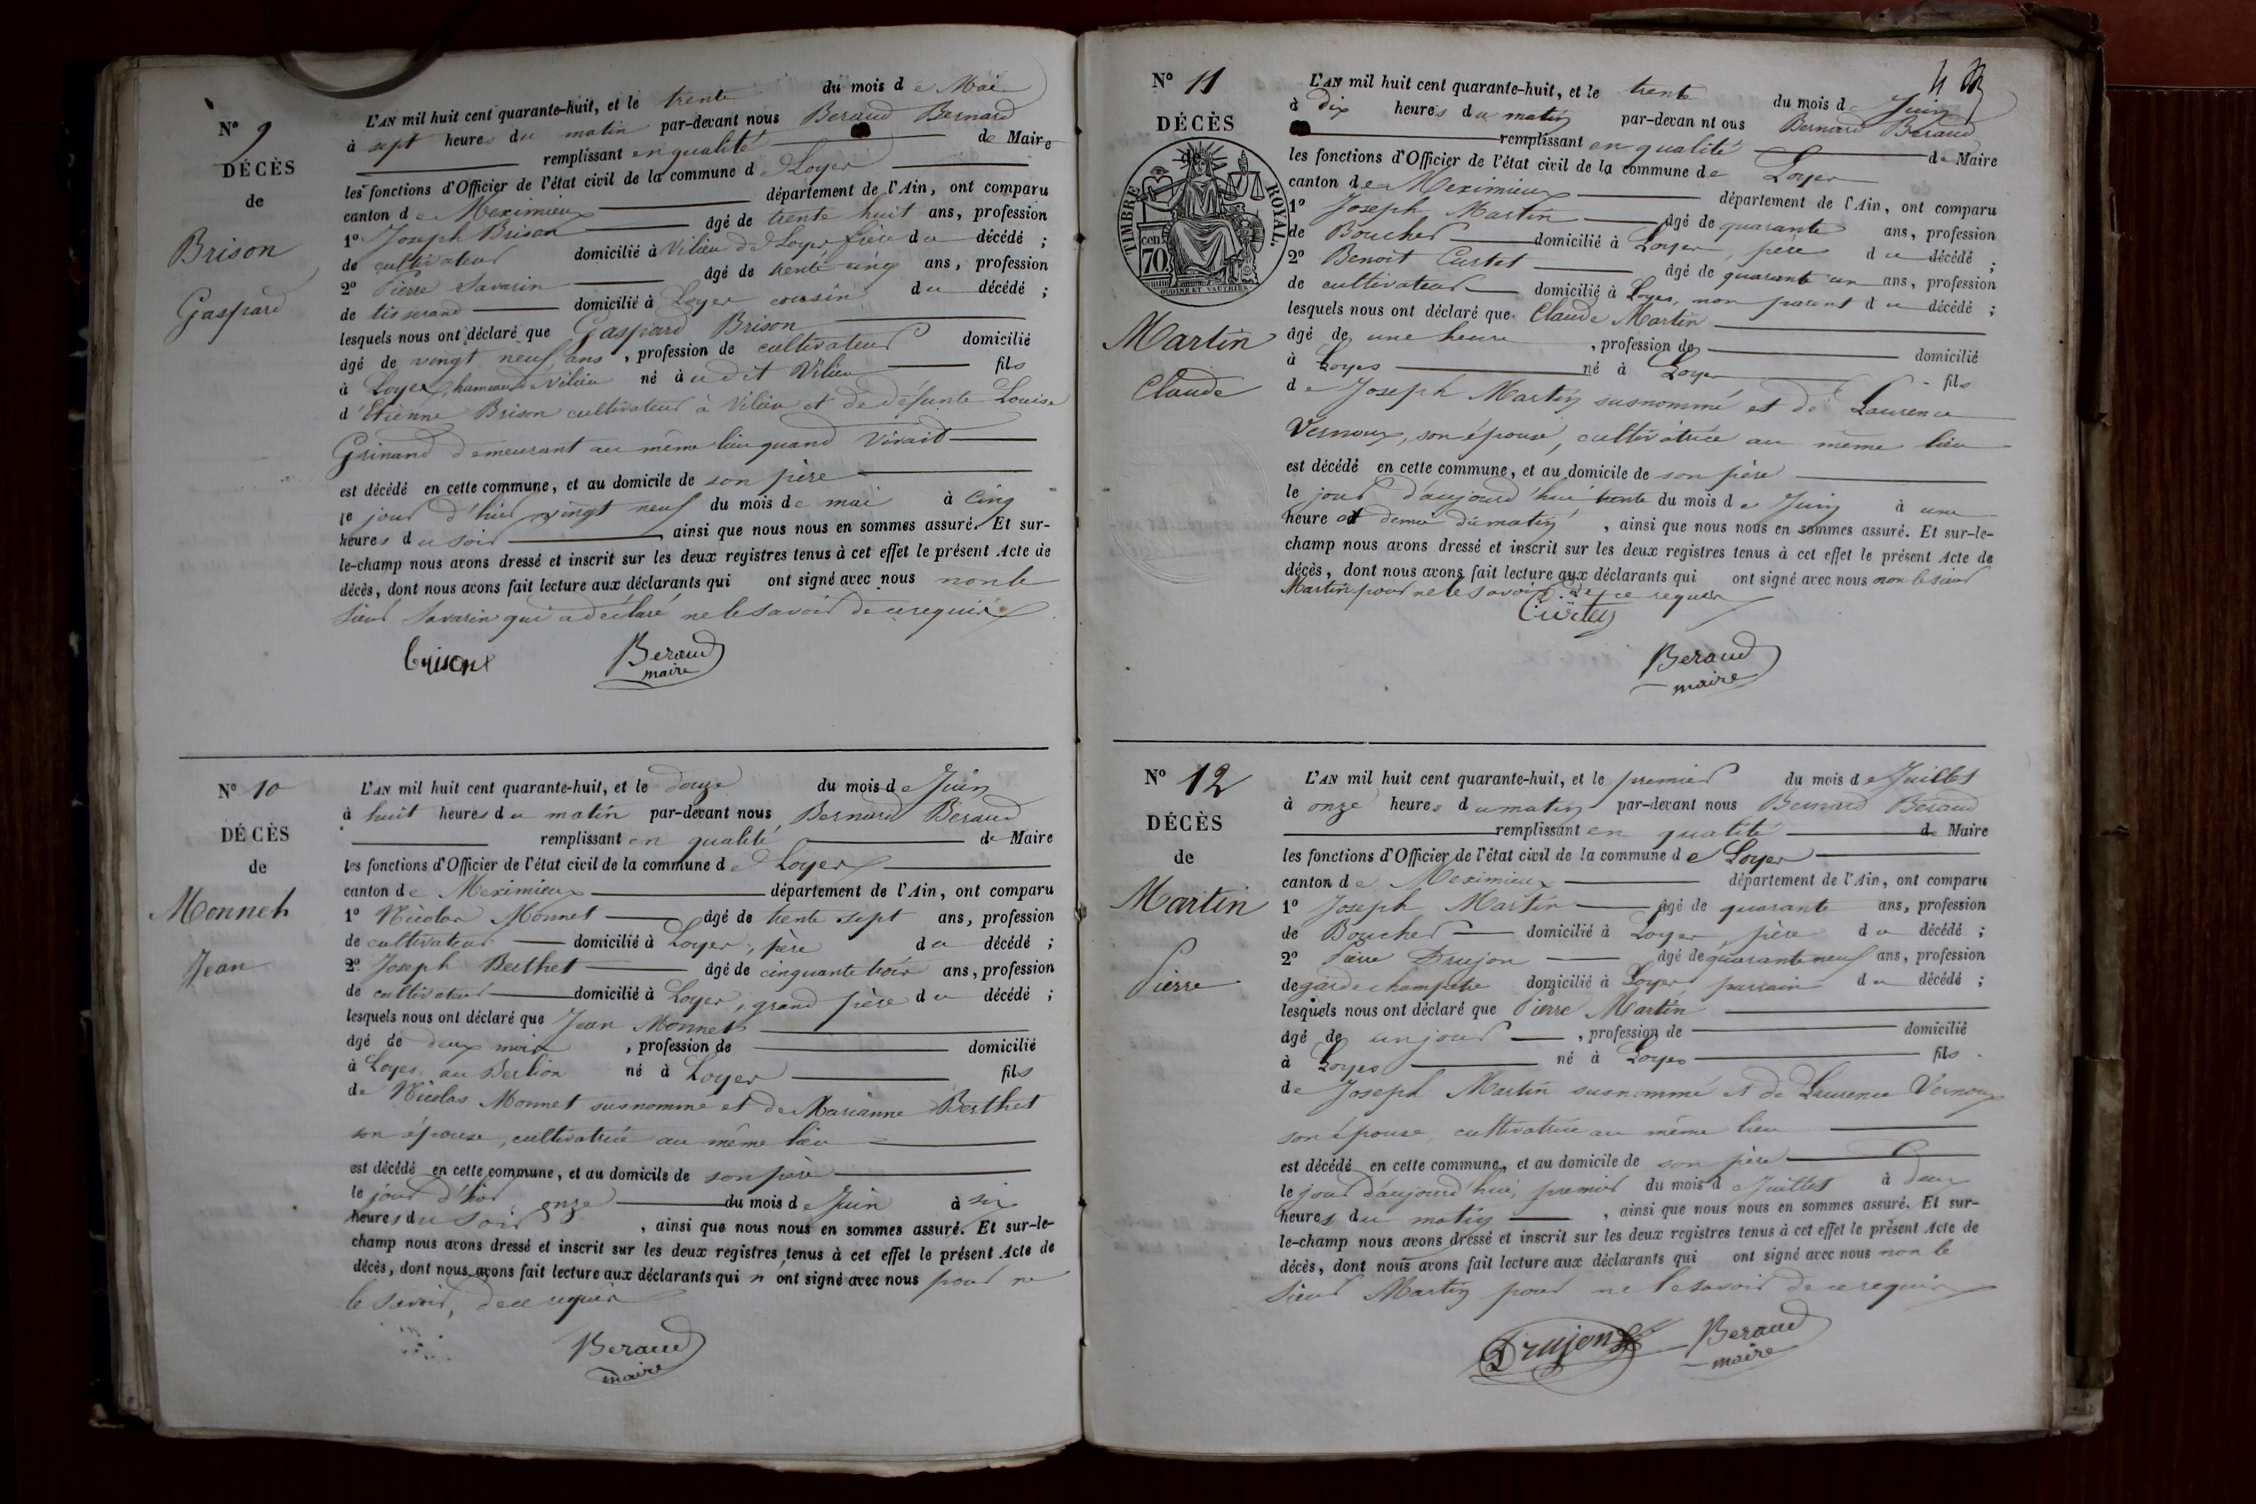 N° 9
DÉCÈS
de
Brison
Gaspard
L'AN mil huit cent quarante-huit, et le trente du mois de Mai
à sept heures du matin par-devant nous Beraud Bernard
remplissant en qualité de Maire
les fonctions d'Officier de l'état civil de la commune de Loyes
canton de Meximieux département de l'Ain, ont comparu
1° Joseph Brison âgé de trente huit ans, profession
de cultivateur domicilié à Vilieu de Loyes frère du décédé ;
2° Pierre Savarin âgé de trente cinq ans, profession
de tisserand domicilié à Loyes cousin du décédé ;
lesquels nous ont déclaré que Gaspard Brison
âgé de vingt neuf ans, profession de cultivateur domicilié
à Loyes, hameau de Vilieu né à udit Vilieu fils
d'Etienne Brison cultivateur à Vilieu et de défunte Louise
Grinand demeurant au même lieu quand vivait
est décédé en cette commune, et au domicile de son père
le jour d'hier vingt neuf du mois de mai à cinq
heures du soir ainsi que nous nous en sommes assuré. Et sur-
le-champ nous avons dressé et inscrit sur les deux registres tenus à cet effet le présent Acte de
décès, dont nous avons fait lecture aux déclarants qui ont signé avec nous non le
sieur Savarin qui a déclaré ne le savoir de ce requis
brison
Beraud
maire
N° 10
DÉCÈS
de
Monnet
Jean
L'AN mil huit cent quarante-huit, et le douze du mois de Juin
à huit heures du matin par-devant nous Bernard Beraud
remplissant en qualité de Maire
les fonctions d'Officier de l'état civil de la commune de Loyes
canton de Meximieux département de l'Ain, ont comparu
1° Nicolas Monnet âgé de trente sept ans, profession
de cultivateur domicilié à Loyes, père du décédé ;
2° Joseph Berthet âgé de cinquante trois ans, profession
de cultivateur domicilié à Loyes, grand père du décédé ;
lesquels nous ont déclaré que Jean Monnet
âgé de deux mois, profession de domicilié
à Loyes au né à Loyes fils
de Nicolas Monnet susnommé et de Marianne Berthet
son épouse, cultivatrice au même lieu
est décédé en cette commune, et au domicile de son père
le jour d'hier onze du mois de Juin à six
heures du soir, ainsi que nous nous en sommes assuré. Et sur-le-
champ nous avons dressé et inscrit sur les deux registres tenus à cet effet le présent Acte de
décès, dont nous avons fait lecture aux déclarants qui n'ont signé avec nous pour ne
le savoir, de ce requis
Beraud
maire
N° 11
DÉCÈS
de
TIMBRE ROYAL.
70
cen
Martin
Claude
L'AN mil huit cent quarante-huit, et le trente du mois de Juin
à dix heures du matin par-devan nt ous Bernard Béraud
remplissant en qualité de Maire
les fonctions d'Officier de l'état civil de la commune de Loyes
canton de Meximieux département de l'Ain, ont comparu
1° Joseph Martin âgé de quarante ans, profession
de Boucher domicilié à Loyes, père du décédé ;
2° Benoit Curtet âgé de quarante un ans, profession
de cultivateur domicilié à Loyes, non parent du décédé ;
lesquels nous ont déclaré que Claude Martin
âgé de une heure, profession de domicilié
à Loyes né à Loyes fils
de Joseph Martin susnommé et de Laurence
Vernoux, son épouse, cultivatrice au même lieu
est décédé en cette commune, et au domicile de son père
le jour d'aujourd'hui trente du mois de Juin à une
heure et demie du matin, ainsi que nous nous en sommes assuré. Et sur-le-
champ nous avons dressé et inscrit sur les deux registres tenus à cet effet le présent Acte de
décès, dont nous avons fait lecture aux déclarants qui ont signé avec nous non le sieur
Martin pour ne le savoir de ce requis
Curtet
Beraud
maire
N° 12
DÉCÈS
de
Martin
Pierre
L'AN mil huit cent quarante-huit, et le premier du mois de Juillet
à onze heures du matin par-devant nous Bernard Béraud
remplissant en qualité de Maire
les fonctions d'Officier de l'état civil de la commune de Loyes
canton de Meximieux département de l'Ain, ont comparu
1° Joseph Martin âgé de quarante ans, profession
de Boucher domicilié à Loyes, père du décédé ;
2° Pierre Drujon âgé de quarante neuf ans, profession
de garde champêtre domicilié à Loyes, parrain du décédé ;
lesquels nous ont déclaré que Pierre Martin
âgé de un jour, profession de domicilié
à Loyes né à Loyes fils
de Joseph Martin susnommé et de Laurence Vernoux
son épouse, cultivatrice au même lieu
est décédé en cette commune, et au domicile de son père
le jour d'aujourd'hui, premier du mois de Juillet à deux
heures du matin, ainsi que nous nous en sommes assuré. Et sur-
le-champ nous avons dressé et inscrit sur les deux registres tenus à cet effet le présent Acte de
décès, dont nous avons fait lecture aux déclarants qui ont signé avec nous non le
sieur Martin pour ne le savoir de ce requis
Drujon
Beraud
maire